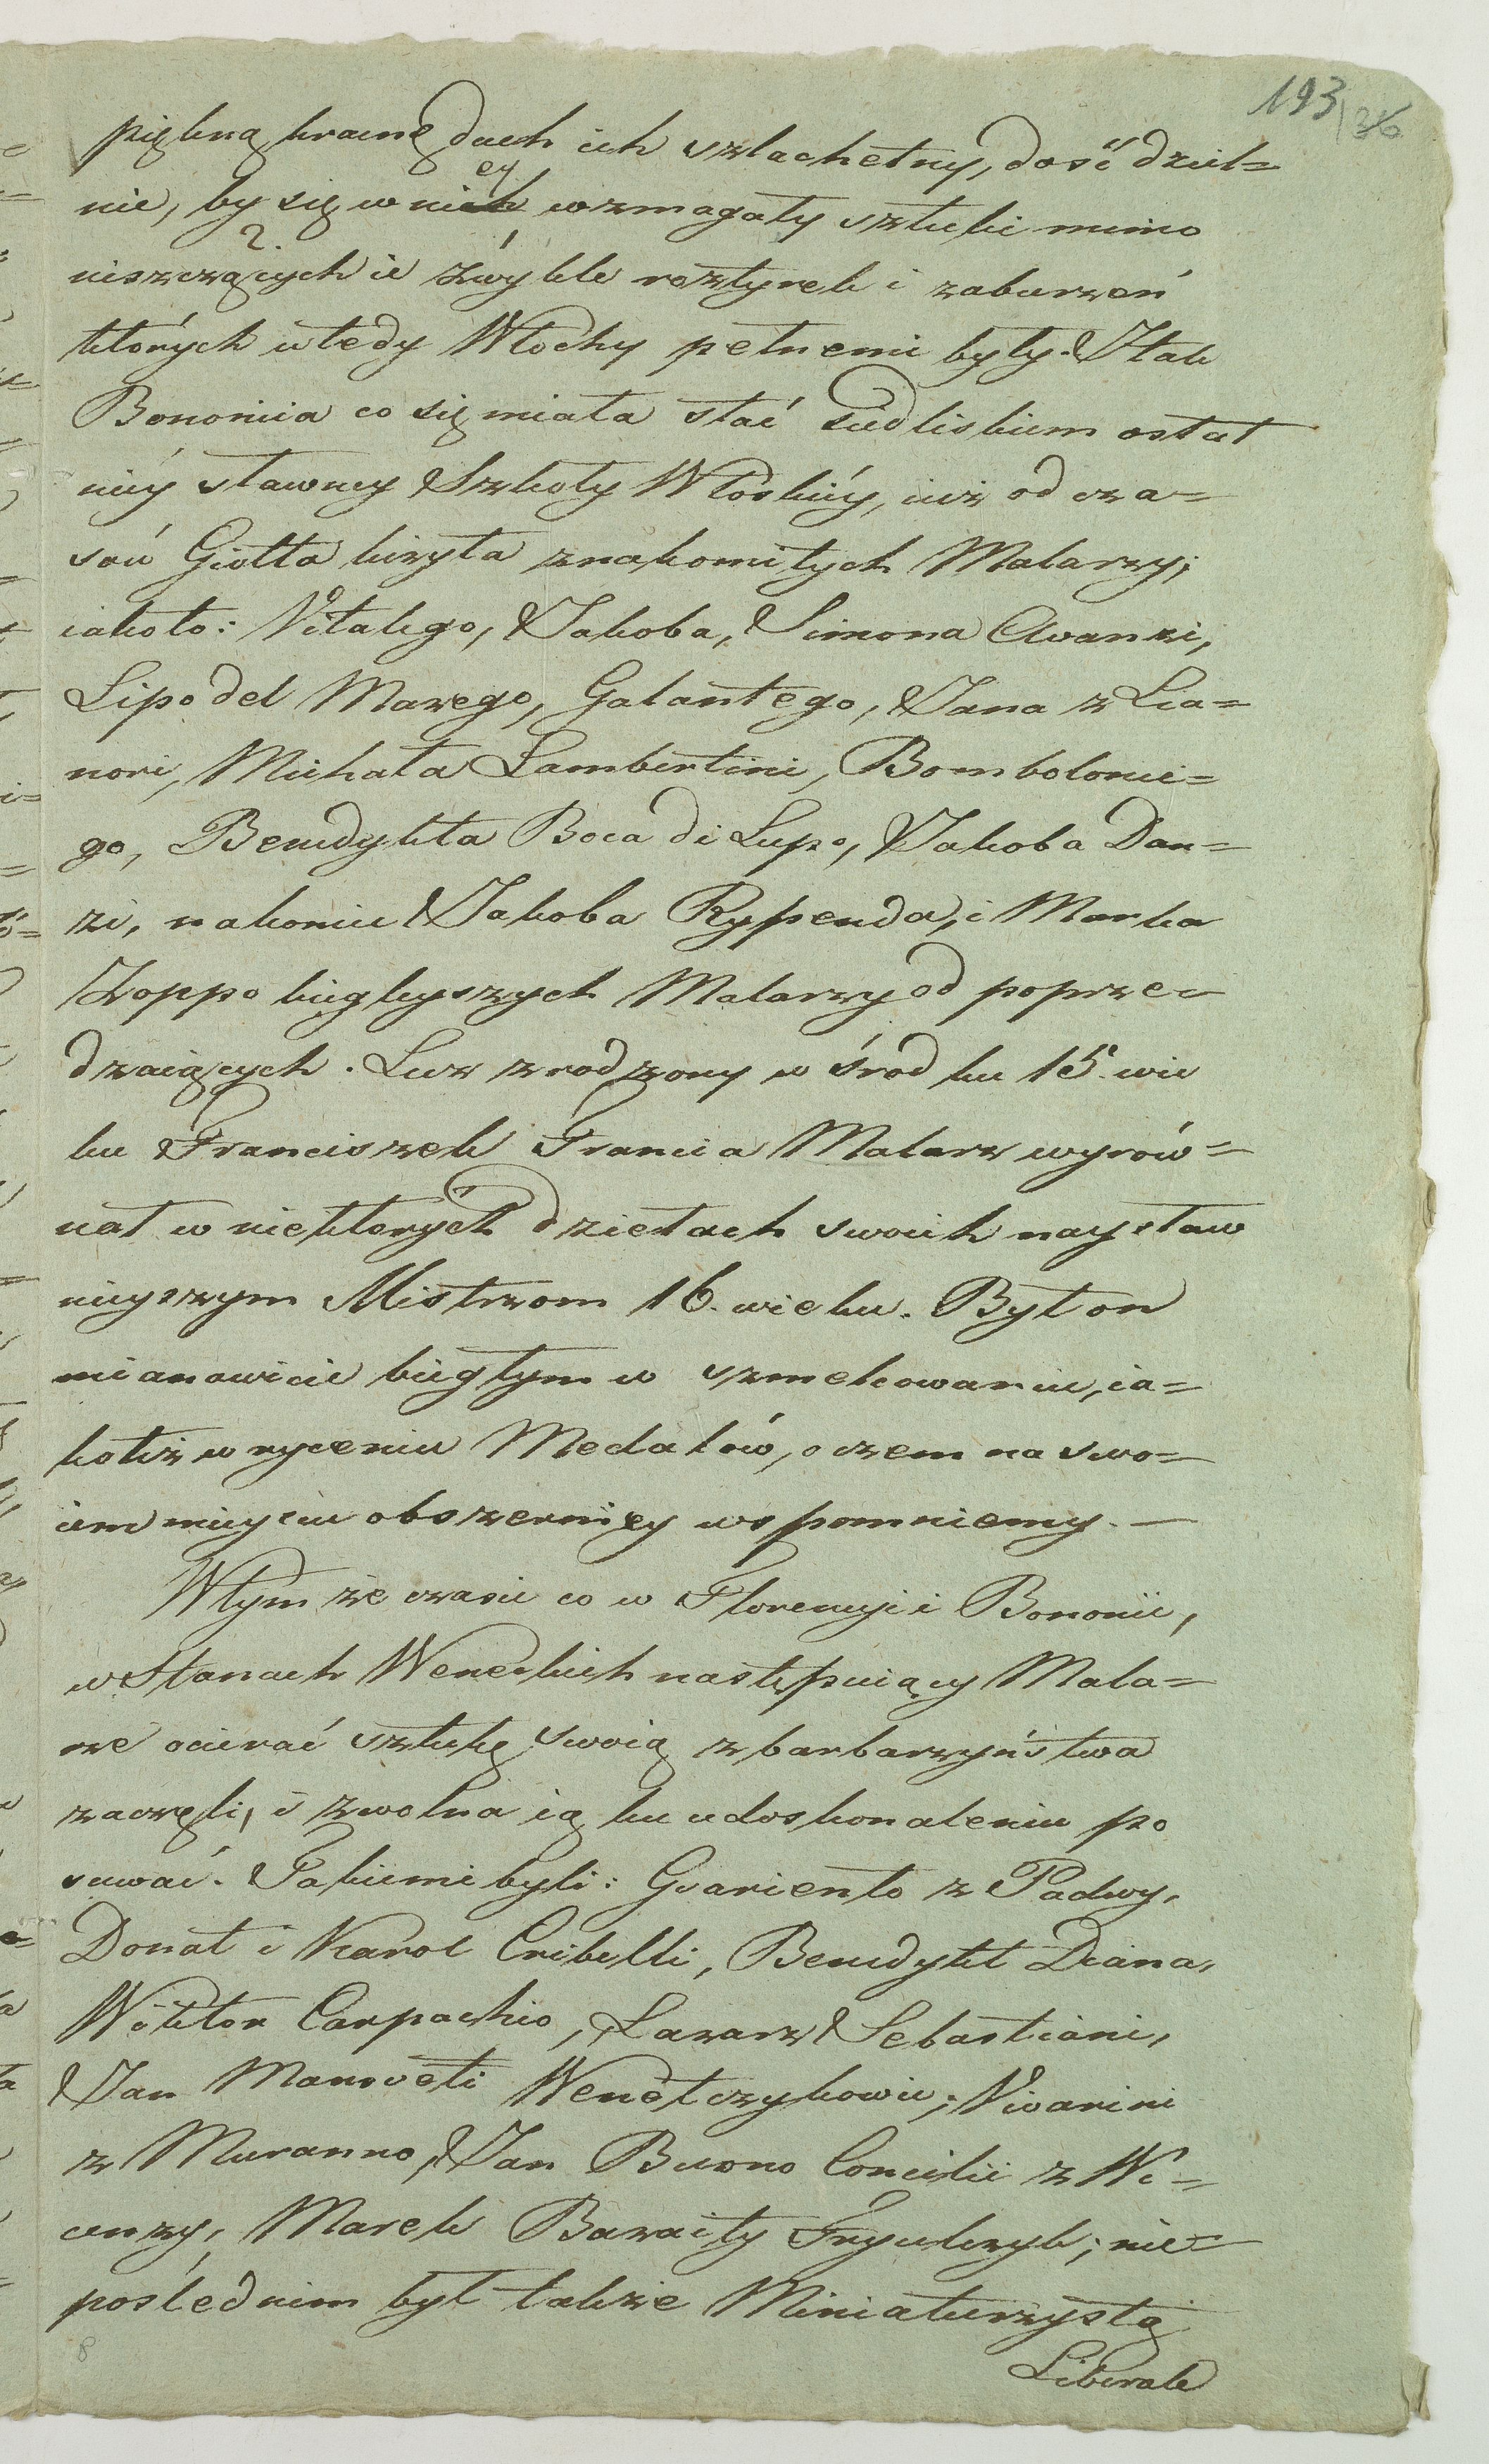 193 36
piękną krainę duch ich szlachetny, dość dziel=
nie, by się w niey wzmagały sztuki mimo
niszczących ie zwykle roztyrek i zaburzeń
których wtedy Włochy pełnemi były. I tak
Bononiia co się miała stać siedliskiem ostat
niéy sławney Szkoły Włoskiéy, iuż od cza=
sów Giotta liczyła znakomitych Malarzy;
iakoto: Vitalego, Jakoba, Simona Avanzi,
Lipo del Mazego, Galantego, Jana z Lia=
nori, Michała Lambertini, Bombolonie=
go, Benedykta Boca di Lupo, Jakoba Dan=
zi, nakoniec Jakoba Rypenda, i Marka
Zoppo biegleyszych Malarzy od poprze=
dzaiących. Lecz zrodzony w środku 15. wie
ku Franciszek Francia Malarz wyrów=
nał w niektórych dziełach swoich naysław
nieyszym Mistrzom 16. wieku. Był on
mianowicie biegłym w szmelcowaniu, ia=
koteż w ryceniu Medalów, o czem na swo=
iem mieyscu obszerniey wspomniemy. —
W tym że czasie co w Florencyi i Bononii,
w Stanach Weneckich następuiący Mala=
rze ocierać sztukę swoią z barbarzyństwa
zaczęli, i zwolna ią ku udoskonaleniu po
suwać. Takiemi byli: Guariento z Padwy,
Donat i Karol Cribelli, Benedykt Diana,
Wiktor Carpachio, Lazarz Sebastiani,
Jan Mansueti Wenetczykowie; Vivarini
z Muranno, Jan Buono Concilii z Wi=
cenzy, Marek Bazaity Fryulczyk; nie=
poślednim był także Miniaturzystą
Liberale
8